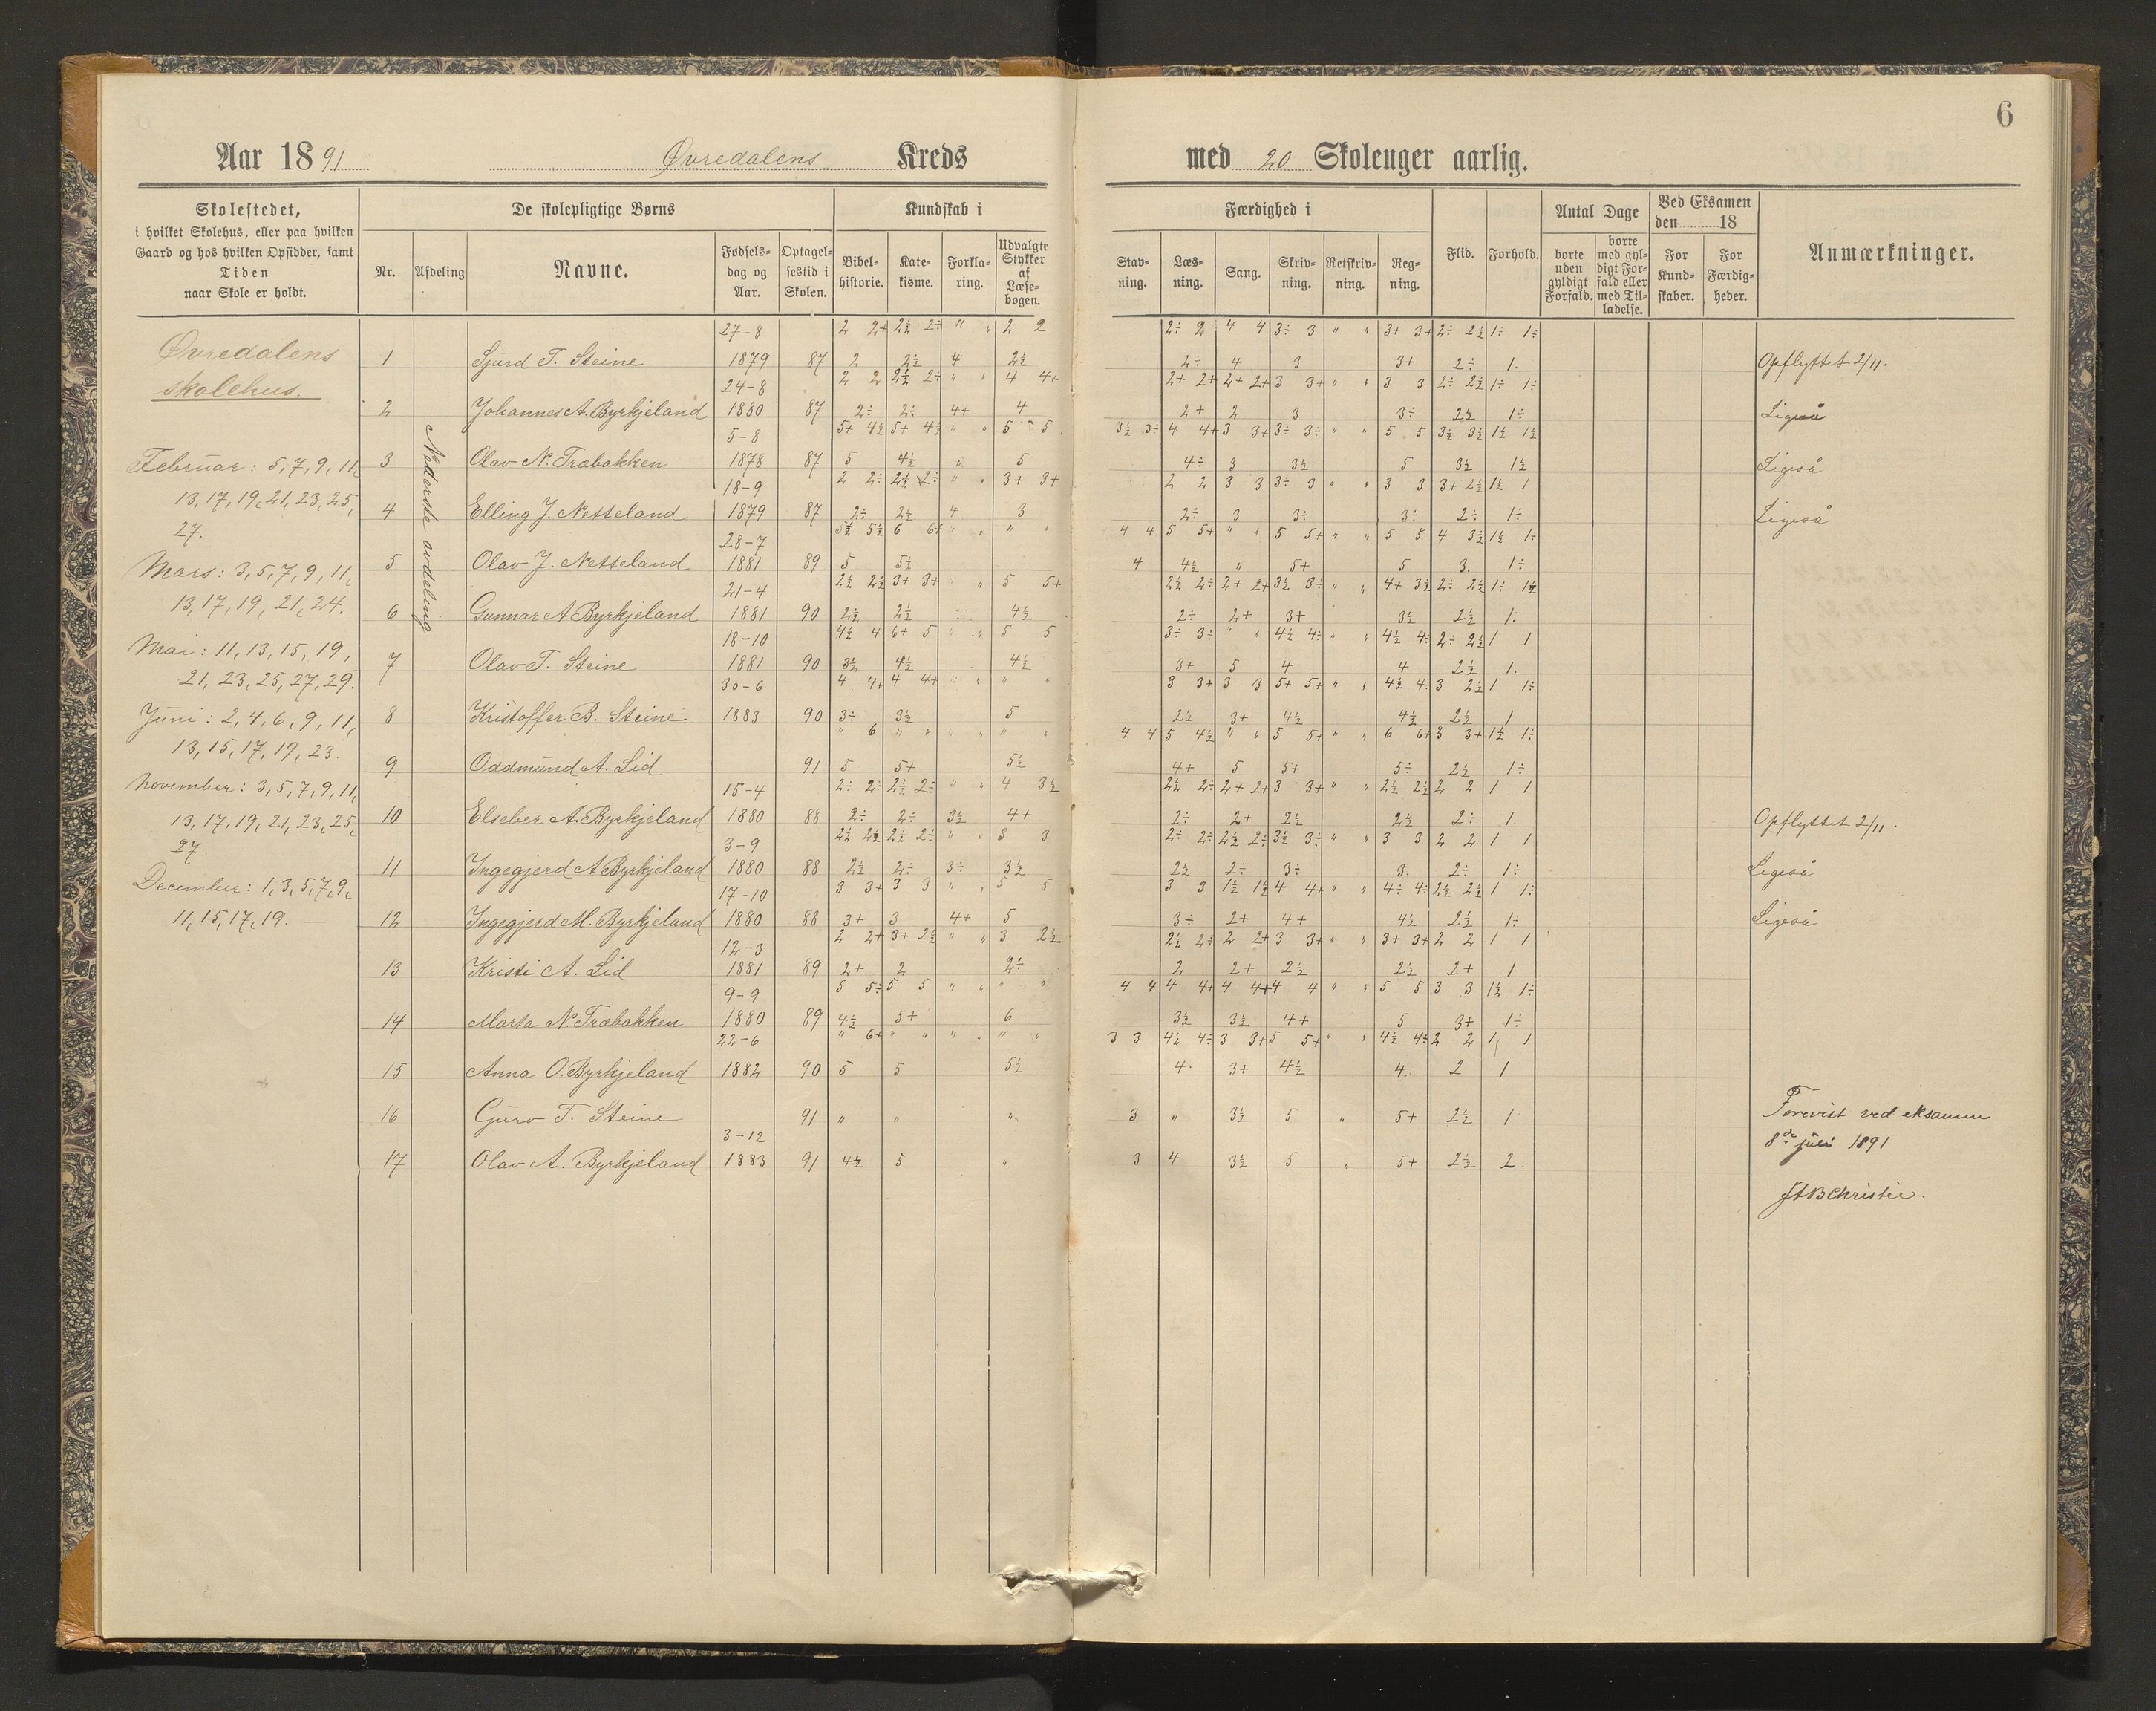 6
Aar 1891 Øvredalens Kreds med 20 Skoleuger aarlig.
Skolestedet,
i hvilket Skolehus, eller paa hvilken
Gaard og hos hvilken Opsidder, samt
Tiden
naar Skole er holdt.
De skolepligtige Børns
Nr. Afdeling Navne. Fødselsdag og Aar. Optagelsestid i Skolen.
Kundskab i
Bibelhistorie. Katekisme. Forklaring. Udvalgte Stykker af Læsebogen.
Færdighed i
Stavning. Læsning. Sang. Skrivning. Retskrivning. Regning.
Flid. Forhold.
Antal Dage
borte uden gyldigt Forfald. borte med gyldigt Forfald eller med Tilladelse.
Ved Eksamen
den 18
For Kundskaber. For Færdigheder.
Anmærkninger.
Øvredalens
skolehus.
Februar: 5, 7, 9, 11,
13, 17, 19, 21, 23, 25,
27.
Mars: 3, 5, 7, 9, 11,
13, 17, 19, 21, 24.
Mai: 11, 13, 15, 19,
21, 23, 25, 27, 29.
Juni: 2, 4, 6, 9, 11,
13, 15, 17, 19, 23.
November: 3, 5, 7, 9, 11,
13, 17, 19, 21, 23, 25,
27.
December: 1, 3, 5, 7, 9,
11, 15, 17, 19. —
Nederste avdeling
27-8 2 2+ 2½ 2÷ " " 2 2 2÷ 2 4 4 3÷ 3 " " 3+ 3+ 2÷ 2½ 1÷ 1÷
1 Sjurd T. Steine 1879 87 2 2½ 4 2½ 2÷ 4 3 3+ 2÷ 1. Opflyttet 2/11.
24-8 2 2 2½ 2÷ " " 4 4+ 2+ 2+ 2+ 2+ 3 3+ " " 3 3 2÷ 2½ 1÷ 1÷
2 Johannes A. Byrkjeland 1880 87 2÷ 2÷ 4+ 4 2+ 2 3 3÷ 2½ 1÷ Ligeså
5-8 5+ 4½ 5+ 4½ " " 5 5 3½ 3÷ 4 4+ 3 3+ 3÷ 3÷ " " 5 5 3½ 3½ 1½ 1½
3 Olav N. Træbakken 1878 87 5 4½ " 5 4÷ 3 3½ 5 3½ 1½ Ligeså
18-9 2 2÷ 2½ 2÷ " " 3+ 3+ 2 2 3 3 3÷ 3 " " 3 3 3+ 2½ 1½ 1
4 Elling J. Nesseland 1879 87 2÷ 2½ 4 3 2÷ 3 3÷ 3÷ 2÷ 1÷ Ligeså
28-7 5½ 5½ 6 6+ " " " " 4 4 5 5+ " " 5 5+ " " 5 5 4 3½ 1½ 1÷
5 Olav J. Nesseland 1881 89 5 5½ 4 4½ " 5+ 5 3. 1÷
21-4 2½ 2½ 3+ 3+ " " 5 5+ 2½ 2÷ 2+ 2+ 3½ 3÷ " " 4+ 3½ 2÷ 2½ 1÷ 1½
6 Gunnar A. Byrkjeland 1881 90 2½ 2½ 4½ 2÷ 2+ 3+ 3½ 2½ 1.
18-10 4½ 4 6+ 5 " " 5 5 3÷ 3÷ " " 4½ 4÷ " " 4½ 4÷ 2÷ 2½ 1 1
7 Olav T. Steine 1881 90 3½ 4½ 4½ 3+ 5 4 4 2½ 1.
30-6 4 4+ 4 4+ " " " " 3 3+ 3 3 5+ 5+ " " 4½ 4÷ 3 2½ 1 1÷
8 Kristoffer B. Steine 1883 90 3÷ 3½ 5 2½ 3+ 4½ 4½ 2½ 1
" 6 " " " " " " 4 4 5 4½ " " 5 5+ " " 6 6+ 3 3+ 1½ 1÷
9 Oddmund A. Lid 91 5 5+ 5½ 4+ 5 5+ 5÷ 2½ 1÷
15-4 2÷ 2÷ 2½ 2÷ " " 4 3½ 2½ 2÷ 2+ 2+ 3 3+ " " 2½ 2½ 2 2 1 1
10 Elseber A. Byrkjeland 1880 88 2÷ 2÷ 3½ 4+ 2÷ 2+ 2½ 2½ 2÷ 1. Opflyttet 2/11.
3-9 2½ 2½ 2½ 2÷ " " 3 3 2÷ 2÷ 2½ 2÷ 3½ 3÷ " " 3 3 2 2 1 1
11 Ingegjerd A. Byrkjeland 1880 88 2½ 2÷ 3÷ 3½ 2½ 2÷ 3÷ 3. 2÷ 1÷ Ligeså
17-10 3 3+ 3 3 " " 5 5 3 3 1½ 1½ 4 4+ " " 4÷ 4÷ 2½ 2½ 1 1÷
12 Ingegjerd M. Byrkjeland 1880 88 3+ 3 4+ 5 3÷ 2+ 4+ 4½ 2½ 1÷ Ligeså
12-3 2 2+ 3+ 2½ " " 3 2½ 2½ 2÷ 2 2+ 3 3+ " " 3+ 3+ 2 2 1 1
13 Kristi A. Lid 1881 89 2+ 2 2÷ 2 2+ 2½ 2½ 2+ 1
9-9 5 5÷ 5 5 " " " " 4 4 4 4+ 4 4+ 4 4 " " 5 5 3 3 1½ 1÷
14 Marta N. Træbakken 1880 89 4½ 5+ 6 3½ 3½ 4+ 5 3+ 1÷
22-6 " 6+ " " " " " " 3 3 4½ 4÷ 3 3+ 5 5+ " " 4½ 4÷ 2 2 1 1
15 Anna O. Byrkjeland 1882 90 5 5 5½ 4. 3+ 4½ 4. 2 1
16 Guro T. Steine 91 " " " 3 " 3½ 5 " 5+ 2½ 1
3-12
17 Olav A. Byrkjeland 1883 91 4½ 5 " 3 4 3½ 5 " 5+ 2½ 2.
Forevist ved eksamen
8de juli 1891
JABChristie.